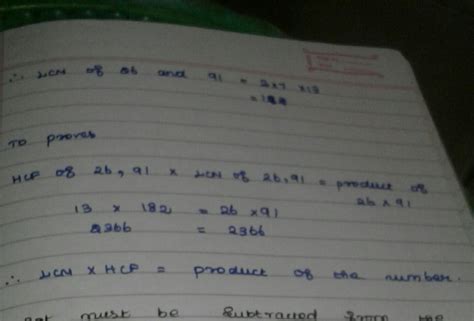 ∴ LCM of 26 and 91 = 2×7×13
= 182
To prove
HCF of 26, 91 × LCM of 26, 91 = product of
26 × 91
13 × 182 = 26 × 91
2366 = 2366
∴ LCM × HCF = product of the number.
must be subtracted from the